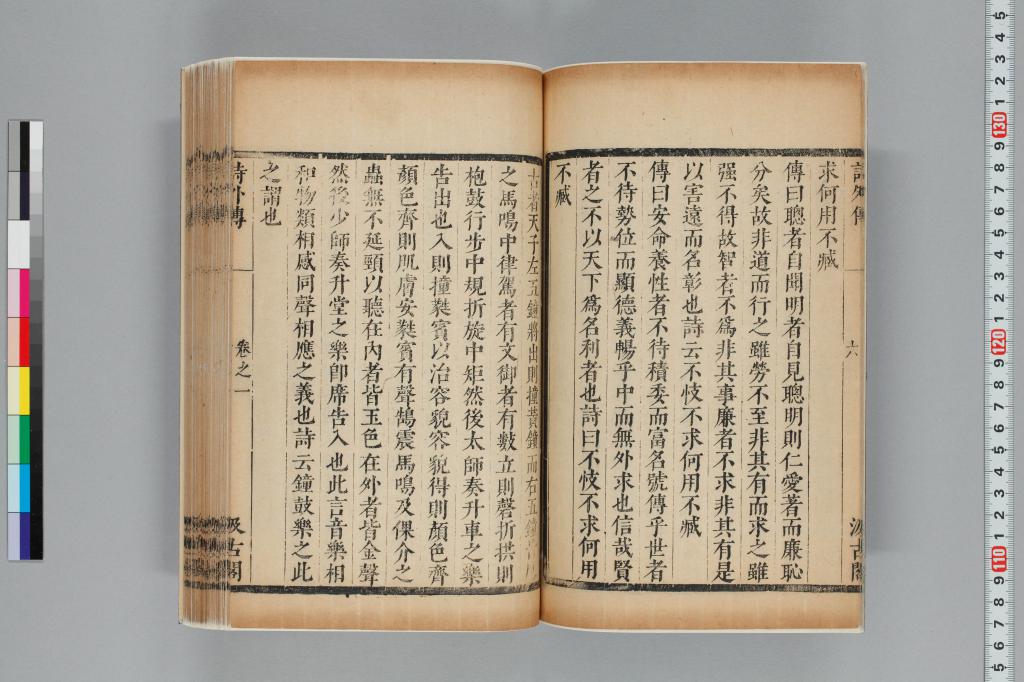 求何用不臧
傳曰聰者自聞明者自見聰明則仁愛著而廉恥
分矣故非道而行之雖勞不至非其有而求之雖
强不得故智者不爲非其事廉者不求非其有是
以害遠而名彰也詩云不忮不求何用不臧
傳曰安命養性者不待積委而富名號傳乎世者
不待勢位而顯德義暢乎中而無外求也信哉賢
者之不以天下爲名利者也詩曰不忮不求何用
不臧
古者天子左五鐘將出則撞黃鐘而右五鐘
之馬鳴中律駕者有文御者有數立則磬折拱則
枹鼓行步中規折旋中矩然後太師奏升車之樂
告出也入則撞蕤賓以治容貌容貌得則顏色齊
顏色齊則肌膚安蕤賓有聲鵠震馬鳴及倮介之
蟲無不延頸以聽在內者皆玉色在外者皆金聲
然後少師奏升堂之樂卽席告入也此言音樂相
和物類相感同聲相應之義也詩云鐘鼓樂之此
之謂也
詩外傳
卷之一
汲古閣